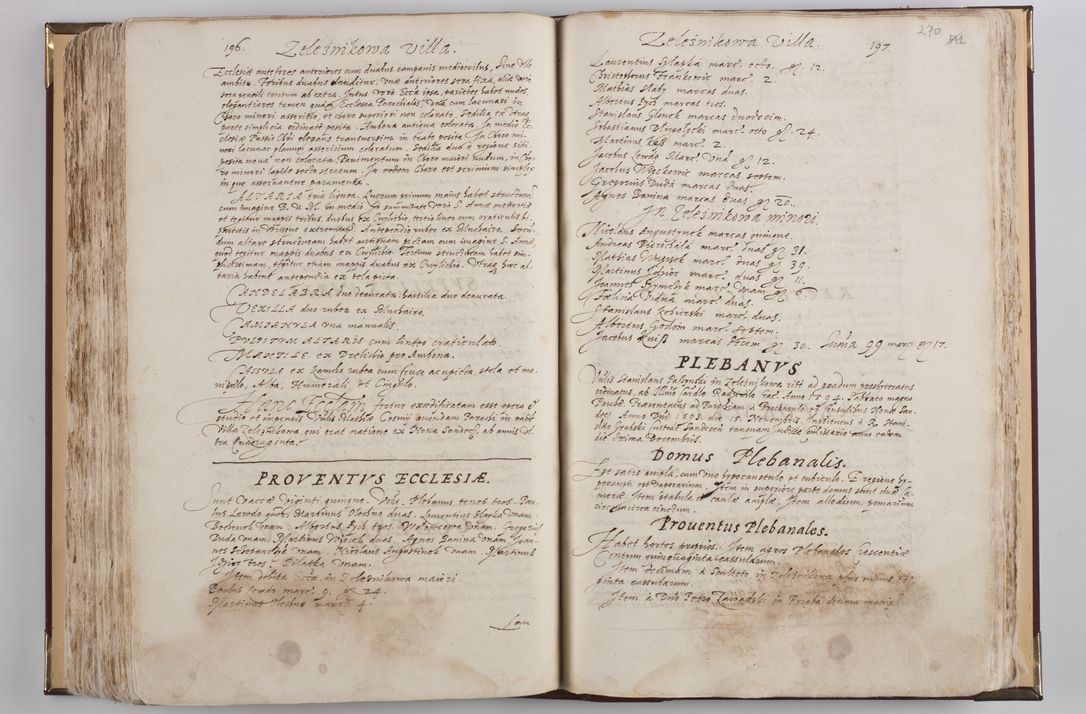 196. Zelesnikowa Villa.
Ecclesiæ ante fores anteriores cum duabus campanis mediocribus, sine
ambitu. Foribus duabus clauditur, unæ anteriores sera fixa, aliæ vero
sera pensili tantum ab extra. Intus vero Eccla ipsa, parietes habet nudos,
elegantiores tamen quam Ecclesia Parochialis, una cum lacunari in
Choro minori asseritio, et choro superiori non colorato. Sedilia ex utraq
parte simplicia ordinate posita. Ambona antiqua colorata. In medio Ec
clesiæ Passio Chri elegans transversim in trabe posita. In Choro mi
nori lacunar planum assericium coloratum. Sedilia duo e regione sibi
posita nova non colorata. Pavimentum in Choro maiori nudum, in Cho
ro minori lapide secto stratum. In eodem Choro est scrinium simplex
in quo asservantur paramenta.
ALTARIA tria lignea. Quorum primum maius habet structuram
cum imagine B. V. M. in medio In summitate vero S. Annæ matris
et tegitur mappis tribus, duobus ex Cwylichio, tertio lineo cum craticulis hi
spartitis in utrisque extremitat. Antependio rubeo ex Muchairo. Secu
dum altare structuram habet antiquam pictam cum imagine S. Annæ,
quod tegitur mappis duabus ex Cwylichio. Tertium structuram habet sim
plicissimam, tegitur etiam mappis duabus ex Cwylichio. Utraq hæc al
taria habent antependia ex tela picta.
CANDELABRA duo deaurata. Hastilia duo deaurata.
VEXILLA duo rubea ex Muchairo.
CAMPANULA una manualis.
PULPITUM ALTARIS cum linteo craticulato.
MANTILE ex Drelichio pro Ambona.
CASSULÆ ex zamba rubra cum cruce acupicta stola et ma
nipulo, Alba, Humerali et Cingulo.
Hanc Ecclam fertur exædificatam esse opera et
studio et impensis
Villa Zelesnikowa, qui erat natione ex Nova Sandecz, ab annis ul
tra Quinquaginta.
PROVENTVS ECCLESIÆ.
Sunt Vaccæ Viginti quinque. Plebanus tenet tres. Pau
lus Lewdo quas, Martinus Olechno duas. Laurentius Slapka unam.
unam. Albertus Sych tres. unam. Gregorius
Duda unam. Martinus Wiecek duas, Agnes Banina unam, Joan
nes unam. Nicolaus Augustinek unam. Martinus
tres. unam.
Item debita Ecclæ in Zelesnikowa maiori.
Paulus Lewdo marc. 9. gr 24.
Martinus Olechno marc. 4.
Lau
Zelesnikowa Villa. 197. 270
Laurentius Slapka marc. octo. gr 12.
Cristoborus Francowic marc. 2.
Mathias Slaby marcas duas.
Albertus Sych marcas tres.
Stanislaus Glenek marcas duodecim.
Sebastianus Dlugolecki marc. octo gr. 24.
Martinus Kess marc. 2.
Jacobus Lewdo Marc. una gr 12.
Jacobus Wyckowic marcas septem.
Gregorius Duda marcas duas.
Agnes Banina marcas duas gr 20.
In Zelesnikowa minori.
Nicolaus Augustynek marcas quinque.
Andreas Pierzchala marc. duas gr 31.
Mathias Wnęcek marc. duas gr 39.
Martinus marc. duas gr 11.
Joannes Szymchic marc. unam gr 6.
Fœlicia Vidua marc. duas.
Stanislaus marc. duas.
Albertus Godom marc. septem.
Jacobus Kuiss marcas decem gr 30. Suma 99 marc gr 17.
PLEBANVS
Vnlis Stanislaus Falęnski in Zelesnikowa rite ad gradum presbyteratus
ordinatus, ab Illmo Cardle Radziwilo fac. Anno 1594. Sabbato magno
Paschæ Præsentatus ad Parochiam a Proconsule et Consulibus Novæ San
decz Anno Dni 1595. die 20 Novembris. Institutus a R. Stani
slao Grabski Custode Sandecen tanquam Judice Comissario anno eodem
die decima Decembris.
Domus Plebanalis.
Est satis ampla, cum uno hypocaustulo et cubiculo. E regione hy
pocausti est vaporarium. Item in superiore parte domus sunt duæ ca
meræ. Item stabula et caulæ amplæ. Item allodium, pomarium
circumcirca cinctum.
Prouentus Plebanales.
Habet hortos proprios. Item agros Plebanales crescentiæ
centum quinquaginta cassularum.
Item decimam à Sculteto in Zelesnikowa plus minus
ginta cassularum.
Item à Dno Petro Zawadski in Poręba decima